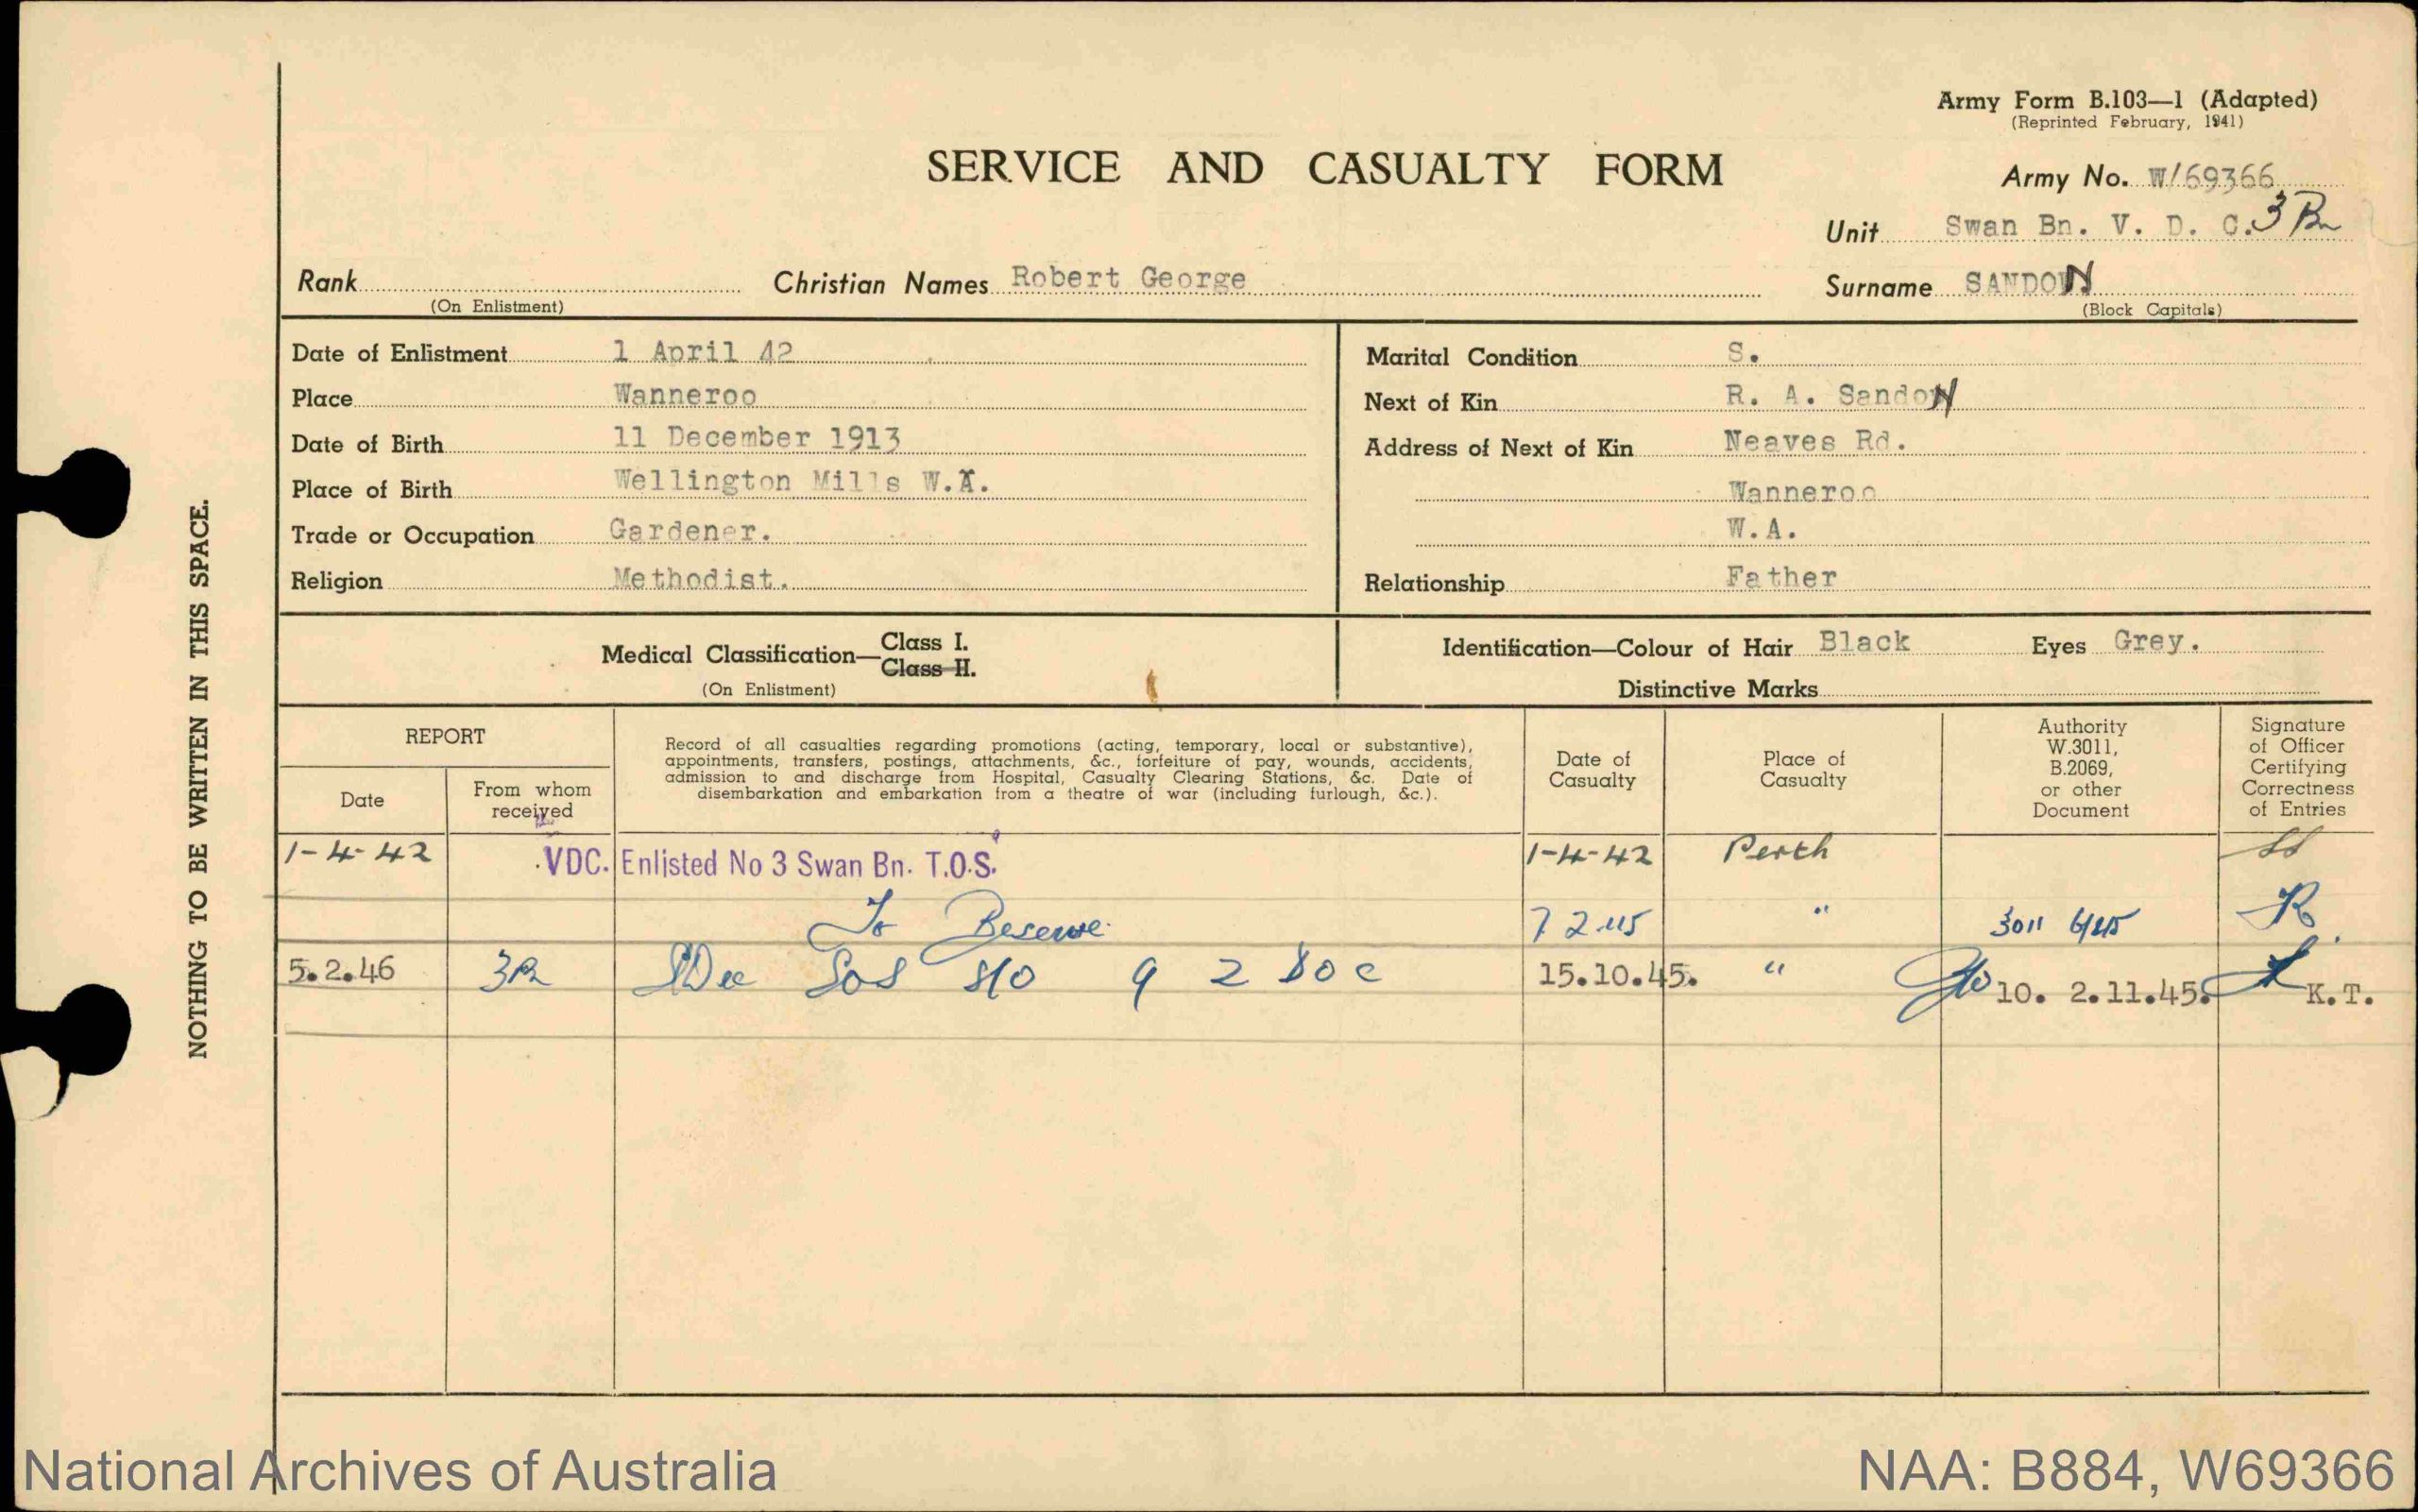 Army Form B.103—1 (Adapted)
(Reprinted February, 1941)
SERVICE AND CASUALTY FORM
Army No. W/69366
Unit Swan Bn. V. D. C. 3 Bn
Rank Christian Names Robert George Surname SANDOW
(On Enlistment) (Block Capitals)
Date of Enlistment 1 April 42
Place Wanneroo
Date of Birth 11 December 1913
Place of Birth Wellington Mills W.A.
Trade or Occupation Gardener.
Religion Methodist.
Marital Condition S.
Next of Kin R. A. Sandow
Address of Next of Kin Neaves Rd.
Wanneroo
W.A.
Relationship Father
Medical Classification— Class I.
Class II.
(On Enlistment)
Identification—Colour of Hair Black Eyes Grey.
Distinctive Marks
REPORT
Date
From whom
received
Record of all casualties regarding promotions (acting, temporary, local or substantive),
appointments, transfers, postings, attachments, &c., forfeiture of pay, wounds, accidents,
admission to and discharge from Hospital, Casualty Clearing Stations, &c. Date of
disembarkation and embarkation from a theatre of war (including furlough, &c.).
Date of
Casualty
Place of
Casualty
Authority
W.3011,
B.2069,
or other
Document
Signature
of Officer
Certifying
Correctness
of Entries
1-4-42 VDC. Enlisted No 3 Swan Bn. T.O.S. 1-4-42 Perth
To Reserve 7 2 45 " 3011 6/45
5.2.46 SOS 15.10.45. " 10. 2.11.45. K.T.
NOTHING TO BE WRITTEN IN THIS SPACE.
National Archives of Australia
NAA: B884, W69366